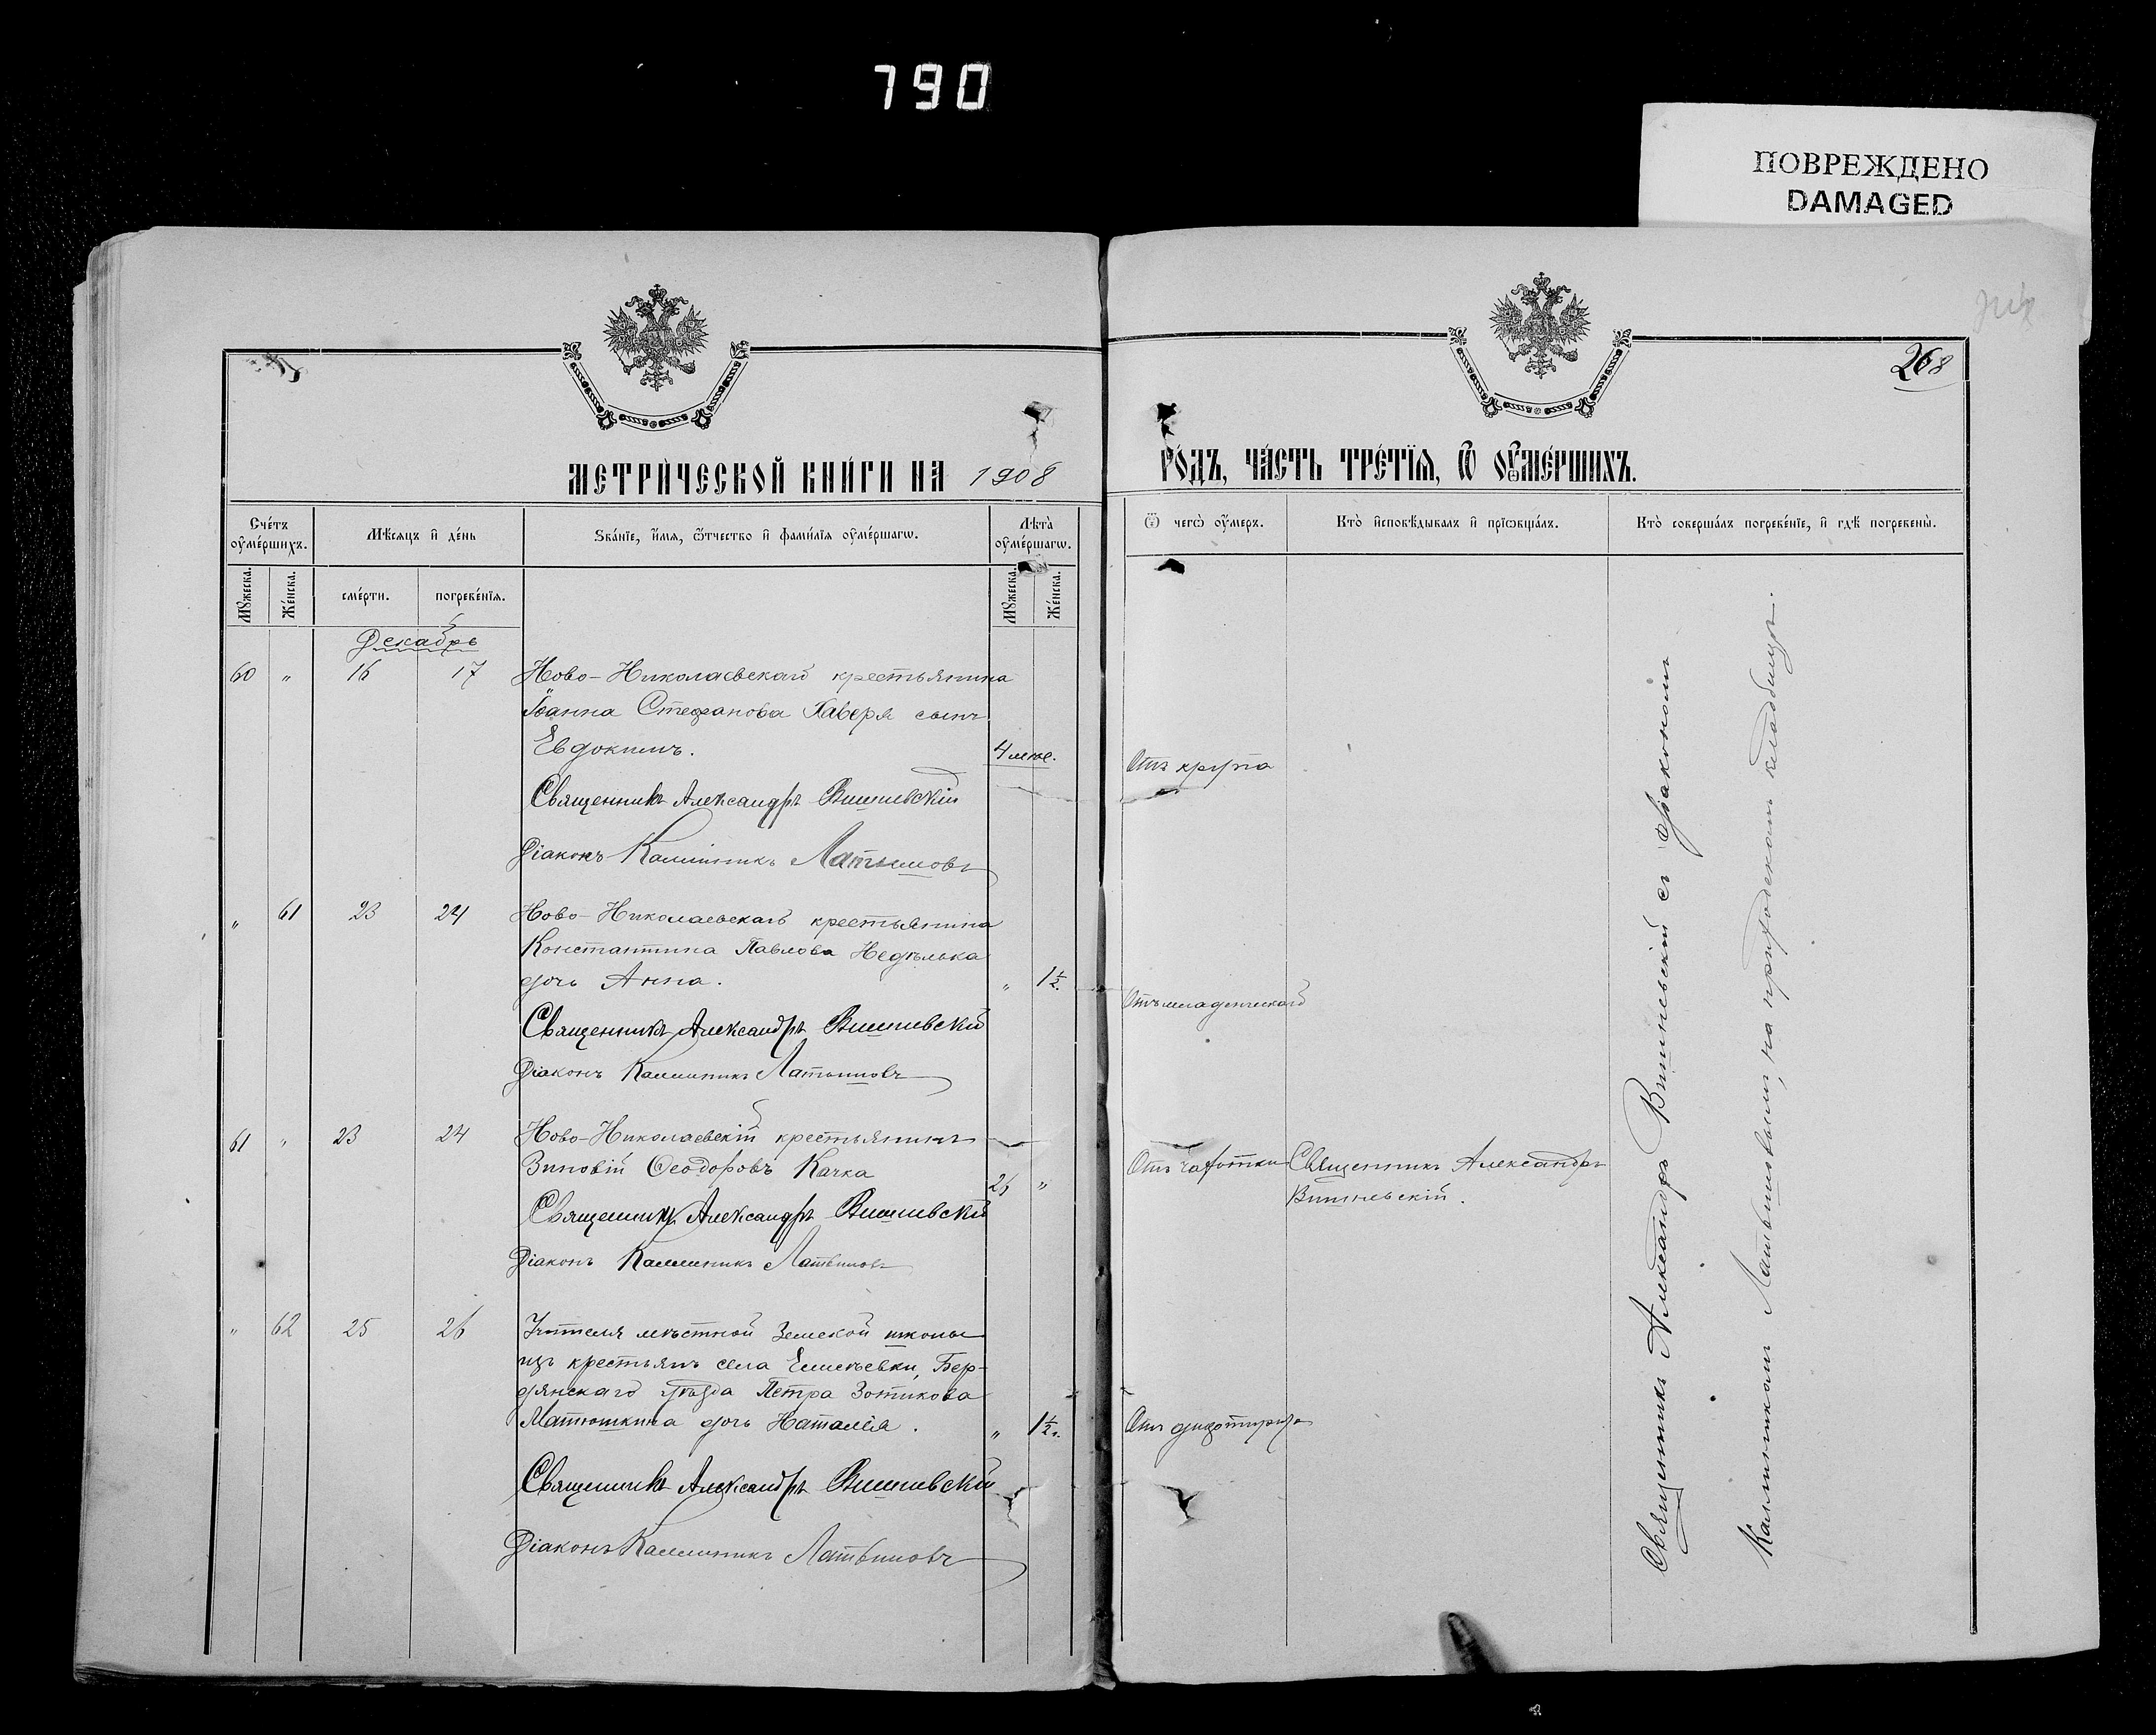 790
ПОВРЕЖДЕНО
DAMAGED
268
МЕТРИЧЕСКОЙ КНИГИ НА 1908
ГОДЪ, ЧАСТЬ ТРЕТІѦ, Ѿ ОУМЕРШИХЪ.
Счетъ оумершихъ.
Мѣсяцъ и день
Званіе, имя, ѿтчество и фамилія оумершагѡ.
Лѣта оумершагѡ.
Ѿ чегѡ оумеръ.
Кто исповѣдывалъ и пріѡбщалъ.
Кто совершалъ погребеніе, и гдѣ погребены.
Мужеска.
Женска.
смерти.
погребенія.
Мужеска.
Женска.
Декабрь
60 " 16 17 Ново-Николаевскаго крестьянина
Іоанна Стефанова Хаверя сынъ
Евдокимъ. 4 мѣс. Отъ крупа
Священникъ Александръ Вишневскій
Діаконъ Каллиникъ Латышовъ
" 61 23 24 Ново-Николаевскаго крестьянина
Константина Павлова Недѣлька
дочь Анна. " 1½. Отъ младенческой
Священникъ Александръ Вишневскій
Діаконъ Каллиникъ Латышовъ
61 " 23 24 Ново-Николаевскій крестьянинъ
Зиновій Ѳеодоровъ Качка 26 " Отъ чахотки Священникъ Александръ
Вишневскій.
Священникъ Александръ Вишневскій
Діаконъ Каллиникъ Латышовъ
" 62 25 26 Учителя мѣстной Земской школы
изъ крестьянъ села Бер-
дянскаго уѣзда Петра Зотикова
Матюшкина дочь Наталія. " 1½ г. Отъ
Священникъ Александръ Вишневскій
Діаконъ Каллиникъ Латышовъ
Священникъ Александръ Вишневскій съ діакономъ
Каллиникомъ Латышовымъ, на приходскомъ кладбищѣ.